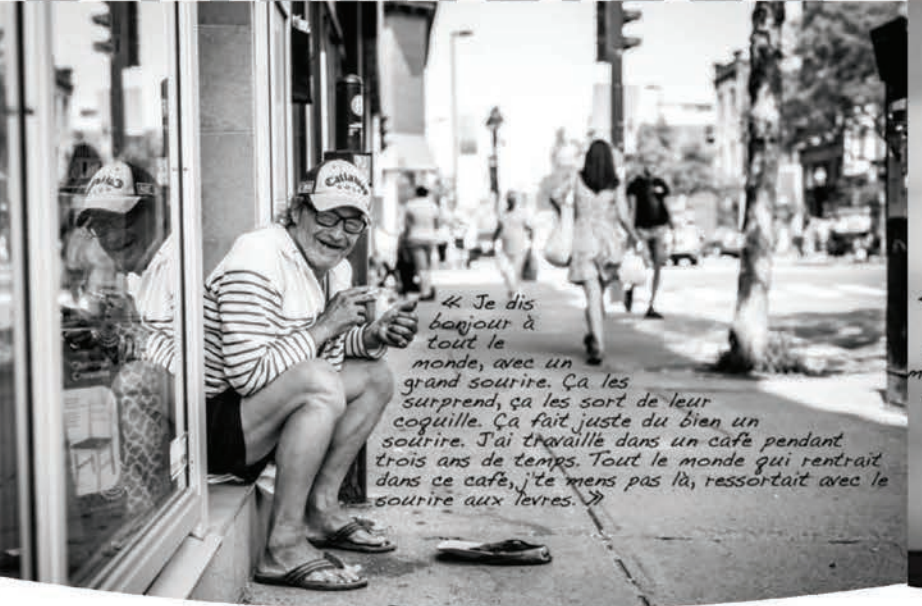 Callaway
GOLF
« Je dis
bonjour à
tout le
monde, avec un
grand sourire. Ça les
surprend, ça les sort de leur
coquille. Ça fait juste du bien un
sourire. J'ai travaillé dans un café pendant
trois ans de temps. Tout le monde qui rentrait
dans ce café, j'te mens pas là, ressortait avec le
sourire aux lèvres. »